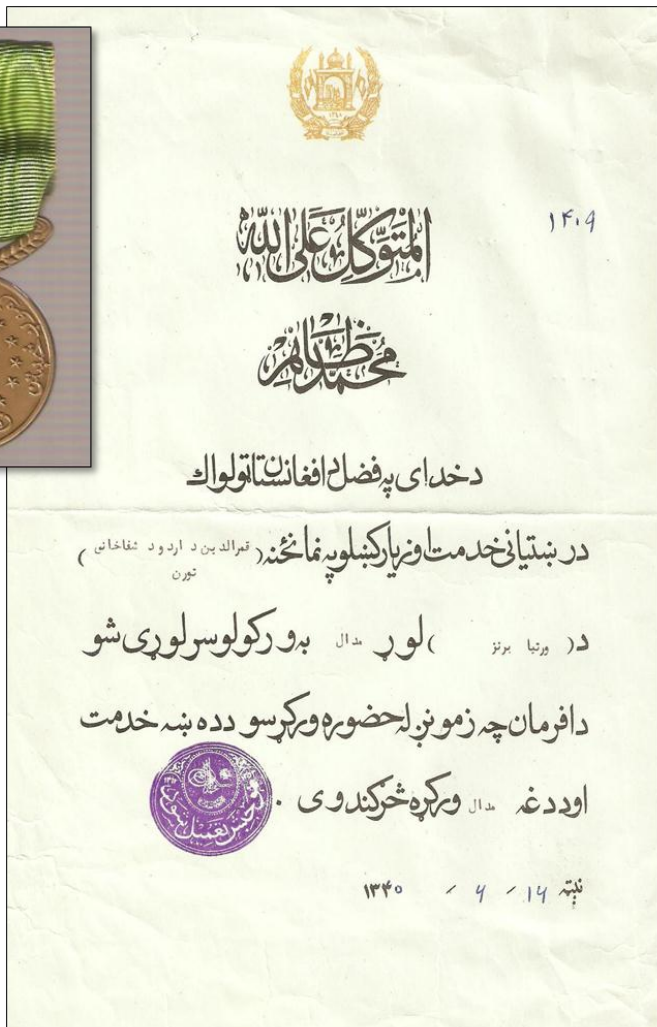 ۱۴۰۹
المتوکل علی الله
محمد ظاهر
د خدای په فضل د افغانستان ټولواک
در ښتیانی خدمت او زیار کښلو په نمانځنه ( قمرالدین د اردو د شفاخانی تورن )
د ( ورتیا برنز ) لوړ مدال په ورکولو سر لوړی شو
دا فرمان چه زمونږ له حضوره ورکړ سو د ده ښه خدمت
او د دغه مدال ورکړه څرګندوی .
نېټه ۱۶ / ۶ / ۱۳۴۰